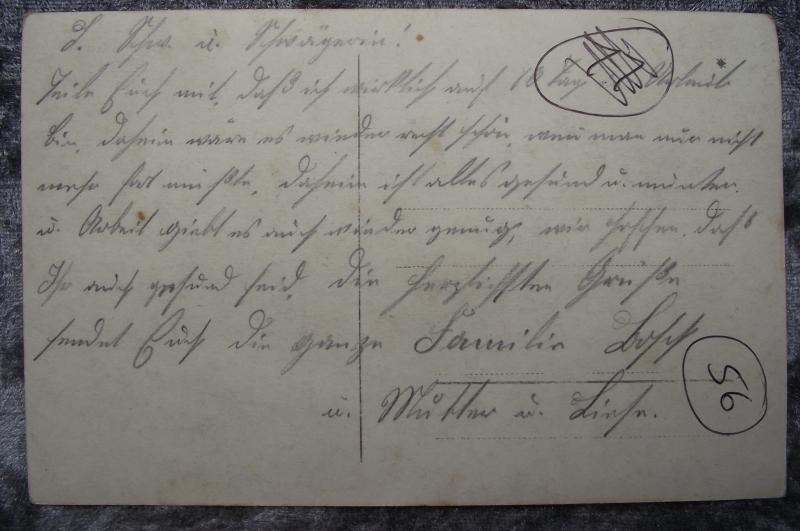 L. Schw. u. Schwägerin!
Teile Euch mit, daß ich wirklich auf 18 Tag Urlaub
bin, daheim wäre es wieder recht schön, wen man nur nicht
mehr fort müßte, daheim ist alles gesund u. munter.
u. Arbeit giebt es auch wieder genug, wir hoffen, daß
Ihr auch gesund seid, die herzlichsten Grüße
sendet Euch die ganze Familie Bosch
u. Mutter u. Liese.
56